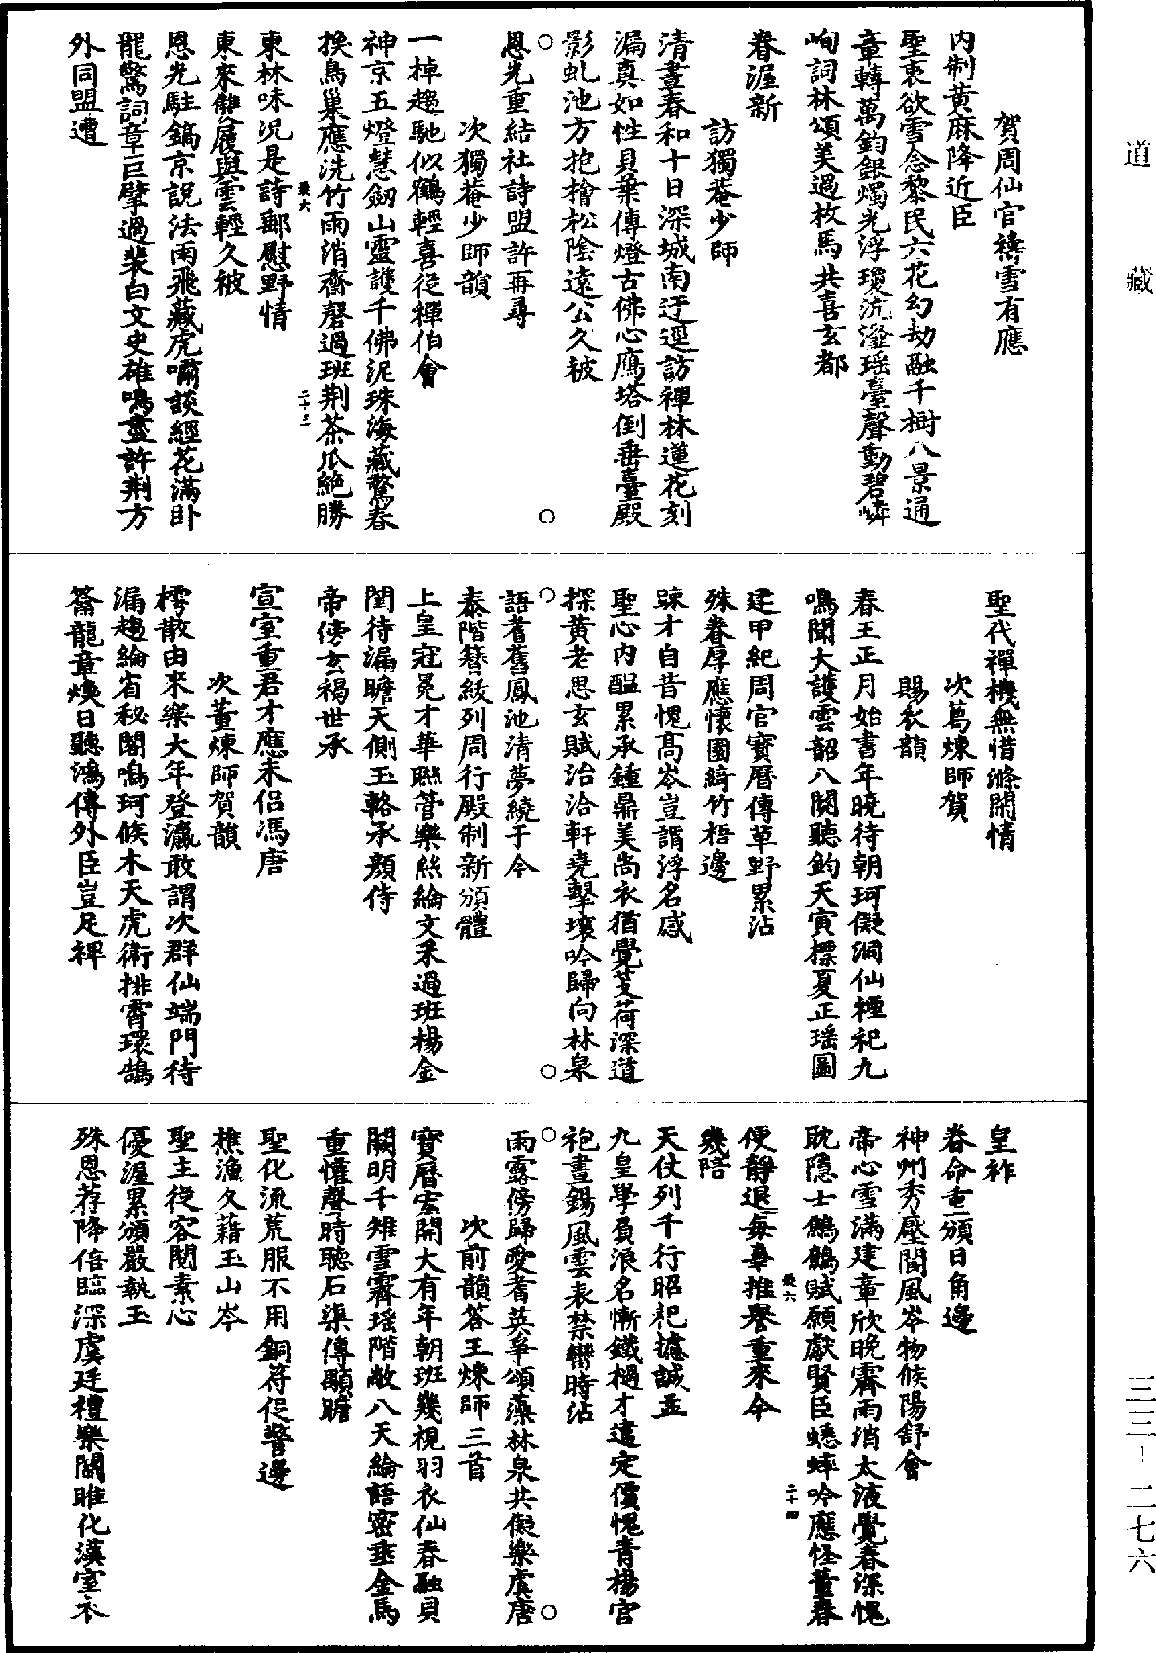 道藏
賀周仙官禱雪有應
內制黃麻降近臣
聖衷欲雪念黎民六花幻劫融千樹八景通
章轉萬鈞銀燭光浮瓊流瀣瑤臺聲動碧嶙
峋詞林頌美過枚馬共喜玄都
眷渥新
訪獨菴少師
清晝春和十日深城南迂逕訪禪林蓮花刻
漏真如性貝葉傳燈古佛心鴈塔倒垂臺殿
影虬池方抱檜松陰遠公久被
恩光重結社詩盟許再尋
次獨菴少師韻
一棹趨馳似鶴輕喜從禪伯會
神京五燈慧劒山靈護千佛泥珠海藏驚春
換鳥巢應洗竹雨消齋磬過班荆茶瓜絶勝
東林味況是詩郵慰野情
東來雙履與雲輕久被
恩光駐鎬京説法雨飛藏虎嘯談經花滿卧
龍驚詞章巨擘過裴白文史雄鳴盡許荆方
外同盟遭
聖代禪機無惜滌閑情
次葛煉師賀
賜衣韻
春王正月始書年曉待朝珂儗洞仙禋祀九
鳴聞大護雲韶八闋聽鈞天寅標夏正瑤圖
建甲紀周官寶曆傳草野累沾
殊眷厚應懷園綺竹梧邊
踈才自昔愧高岑豈謂浮名感
聖心内醖累承鍾鼎美尚衣猶覺芰荷深道
探黃老思玄賦治洽軒堯擊壤吟歸向林泉
語耆舊鳳池清夢繞于今
泰階簪紱列周行殿制新頒體
上皇冠冕才華聯管樂絲綸文釆過班楊金
閨待漏瞻天側玉輅承顏侍
帝傍玄褐世承
宣室重君才應未侶馮唐
次董煉師賀韻
樗散由來樂大年登瀛敢謂次群仙端門待
漏趨綸省秘閣鳴珂候木天虎衛排霄環鵠
籥龍章煥日聽鴻傳外臣豈足裨
皇祚
眷命重頒日角邊
神州秀壓閬風岑物候陽舒會
帝心雪滿建章欣晚霽雨消太液覺春深愧
耽隠士鷦鶴賦願獻賢臣蟋蟀吟應怪董春
便靜退每辜推譽重來今
幾陪
天仗列千行昭祀攄誠並
九皇學負浪名慚鐵櫪才遺定價愧青楊宫
袍晝錫風雲表禁轡時沾
雨露傍歸愛耆英爭頌藻林泉共儗樂虞唐
次前韻答王煉師三首
寳曆宏開大有年朝班幾視羽衣仙春融貝
闕明千雉雪霽瑤階敞八天綸語密垂金馬
重懽聲時聽石渠傳顒瞻
聖化流荒服不用銅符促警邊
樵漁久藉玉山岑
聖主從容閱素心
優渥累頒嚴執玉
殊恩荐降倍臨深虞廷禮樂關雎化漢室衣
羲六
二十三
羲六
二十四
三三-二七六